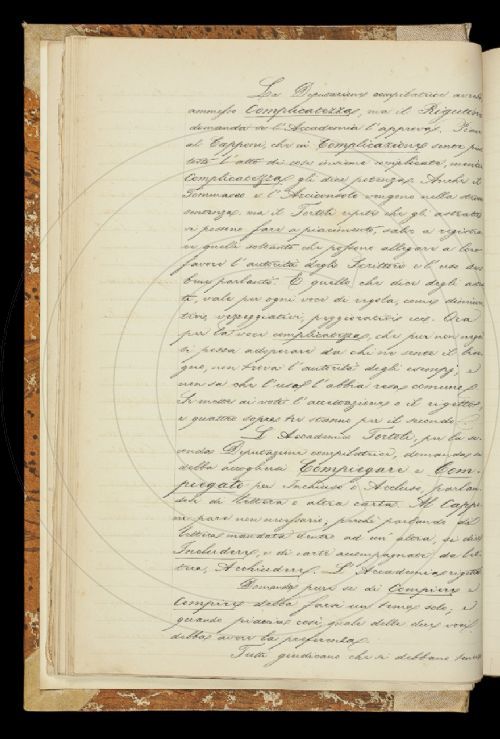 La Deputazione compilatrice avrebbe
ammesso Complicatezza, ma il Rigutini
domanda se l'Accademia l'approva. Pare
al Capponi, che in Complicazione senta piut
tosto l'atto di cose insieme complicate, mentre
Complicatezza gli dice potenza. Anche il
Tommaseo e l'Arcangeli vengono nella stessa
sentenza, ma il Tortoli ripete che gli astratti
si possono fare a piacimento, salvo a registrar
ne quelli soltanto che possono allegare a loro
favore l'autorità degli Scrittori e l'uso dei
bene parlanti. E quello che dice degli astrat
ti, vale per ogni voce di regola, come diminu
tivi, vezzeggiativi, peggiorativi ecc. Ora
per la voce complicatezza, che pur non nega
si possa adoperare da chi ne senta il biso
gno, non trova l'autorità degli esempj, e
non sa che l'uso l'abbia resa comune.
Si mette ai voti l'accettazione o il rigetto,
e quattro sopra tre stanno per il secondo.
L'Accademico Tortoli, per la se
conda Deputazione compilatrice, domanda se
debba accogliersi Compiegare e Com-
piegato per Inchiuso e Accluso, parlan
dosi di lettera o altra carta. Al Cappo
ni pare non necessario, perchè parlando di
lettera mandata dentro ad un'altra, si dice
Includere, e di carte accompagnate da let
tera, Acchiudere. L'Accademia rigetta.
Domanda pure se di Compiere e
Compire debba farsi un tema solo; e
quando piacesse così, quale delle due voci
debba avere la preferenza.
Tutti giudicano che si debbano